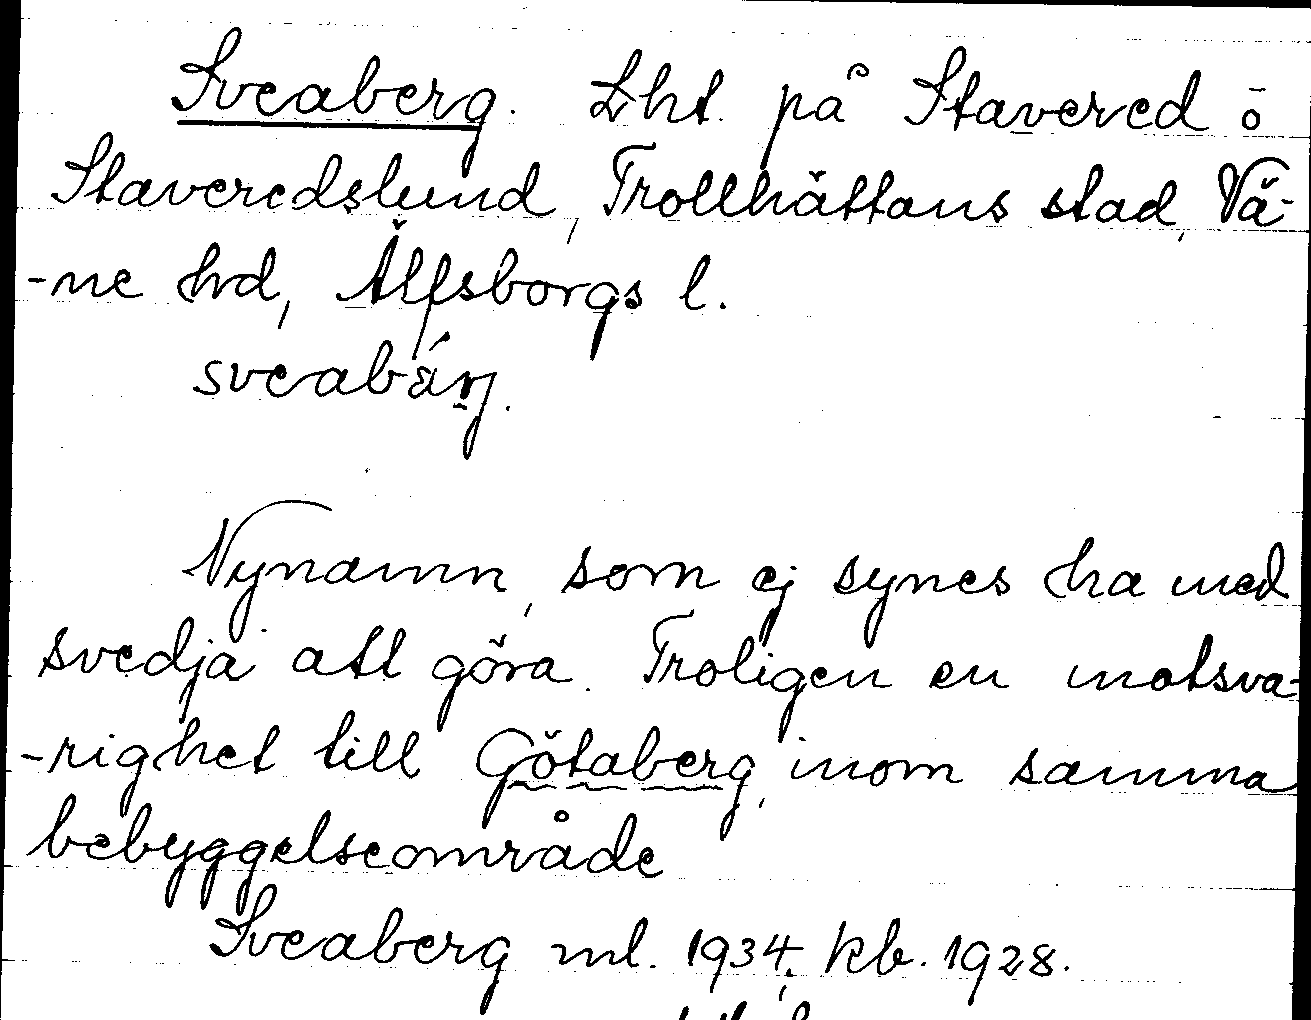 Sveaberg. Lht. på Stavered o̅
Staveredslund, Trollhättans stad, Vä-
-ne hd, Älfsborgs l.
sveabárj.
Nynamn, som ej synes ha med
svedja att göra. Troligen en motsva-
-righet till Götaberg, inom samma
bebyggelseområde
Sveaberg ml. 1934; kb. 1928.